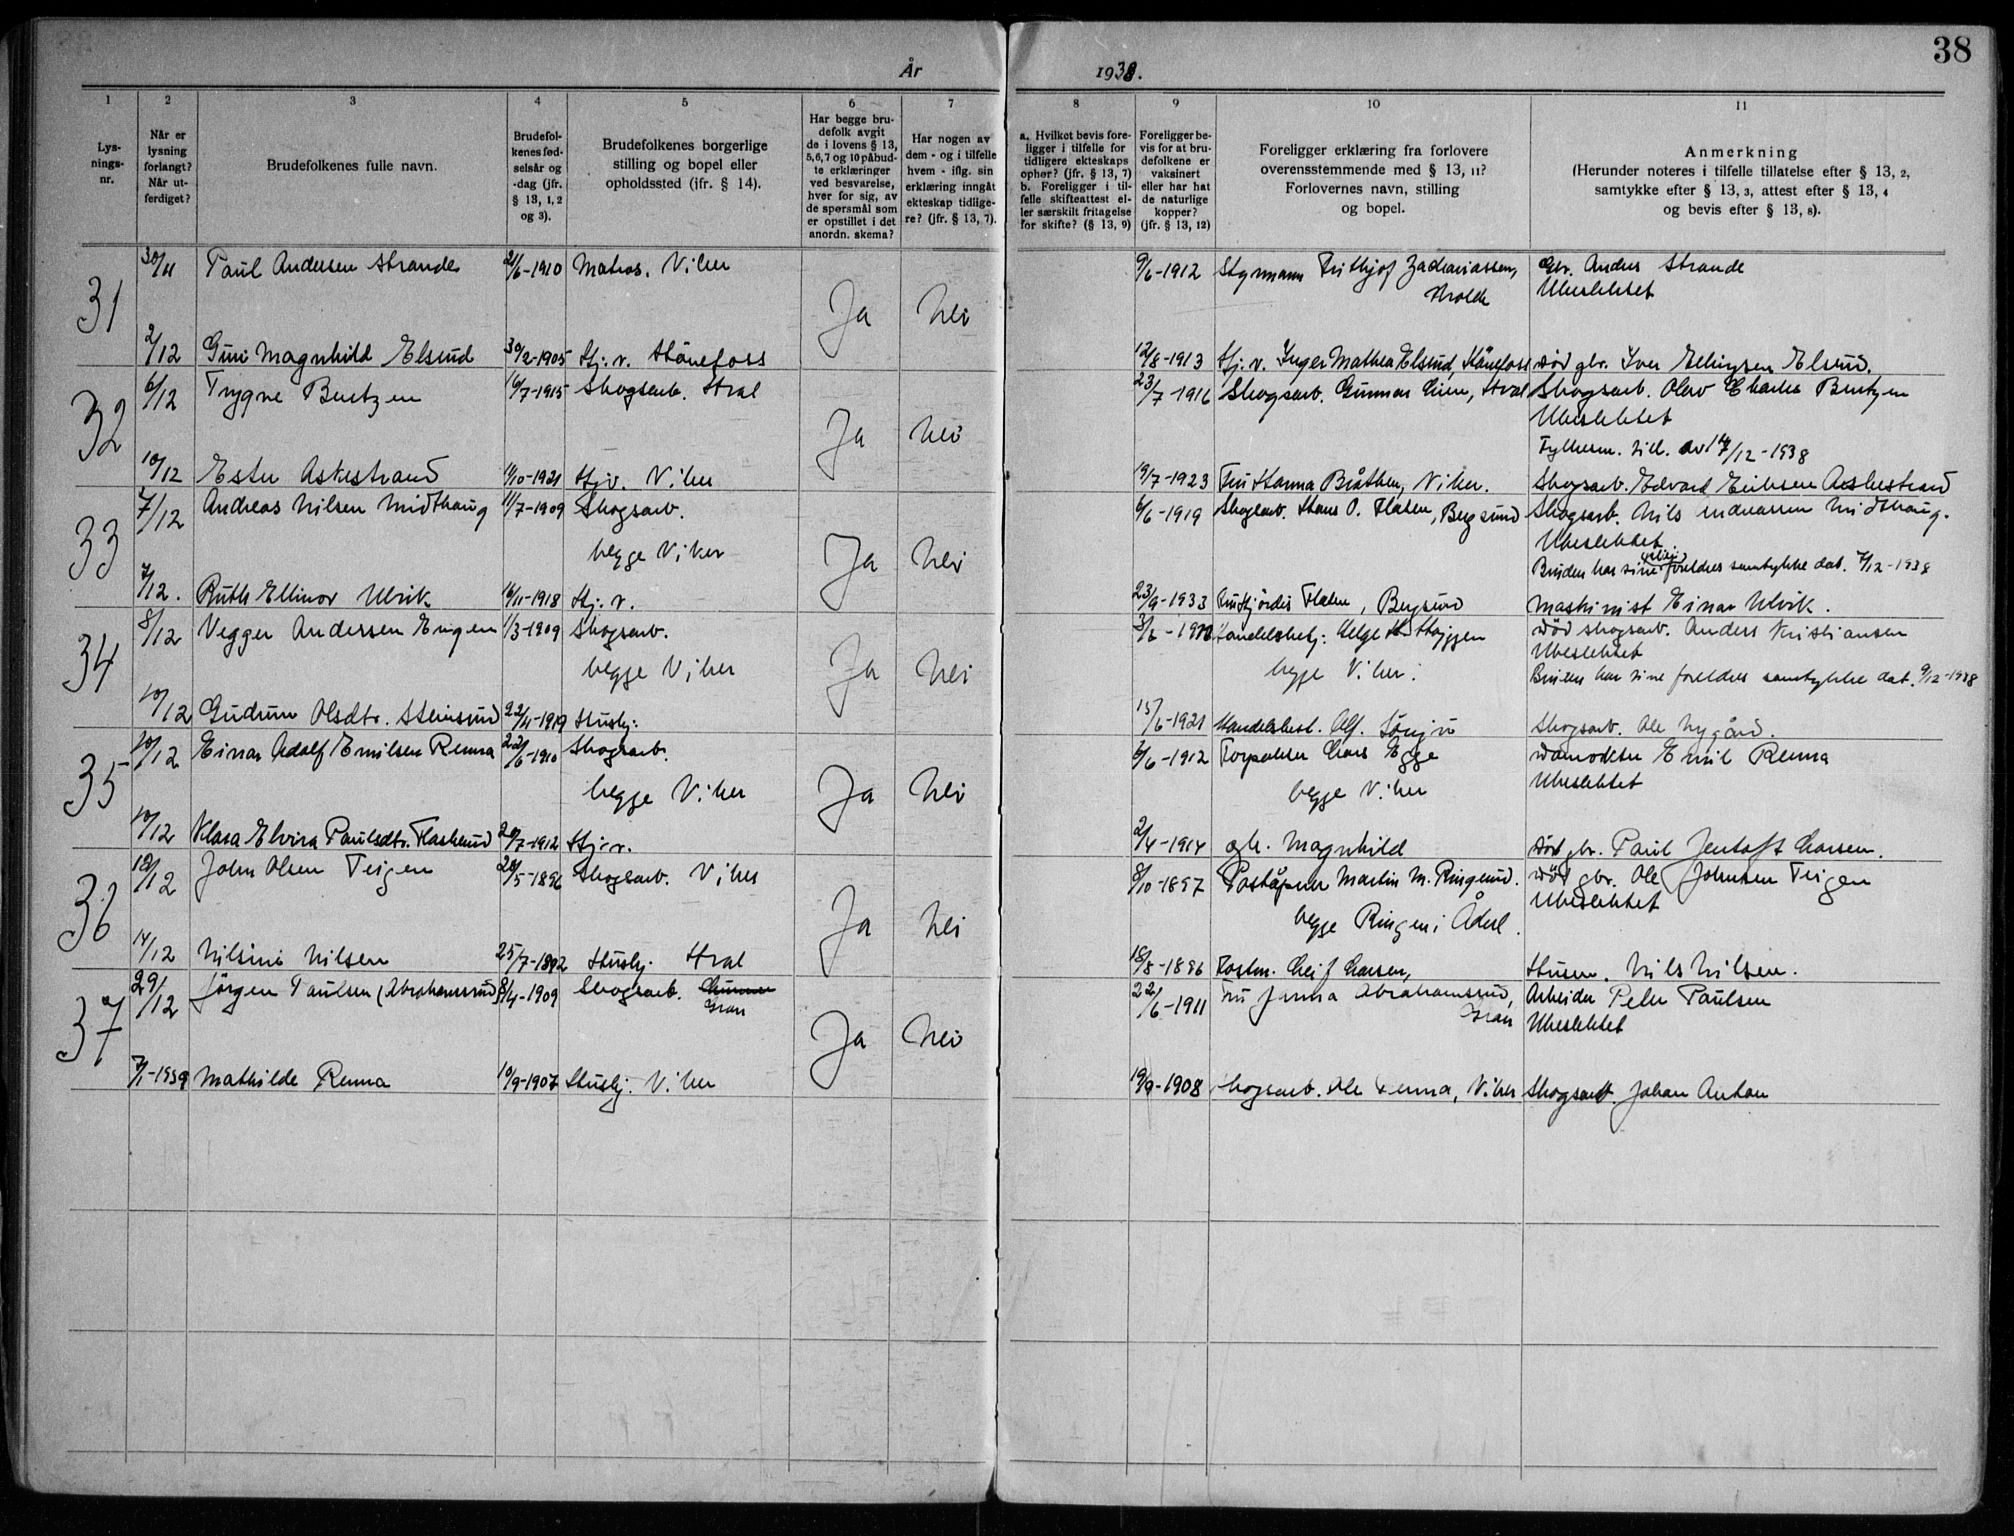 38
År 1938.
1 2 3 4 5 6 7 8 9 10 11
Lys-
nings-
nr.
Når er
lysning
forlangt?
Når ut-
ferdiget?
Brudefolkenes fulle navn.
Brudefol-
kenes fød-
selsår og
-dag (jfr.
§ 13, 1, 2
og 3).
Brudefolkenes borgerlige
stilling og bopel eller
opholdssted (jfr. § 14).
Har begge bru-
defolk avgit
de i lovens § 13,
5, 6, 7 og 10 påbud-
te erklæringer
ved besvarelse,
hver for sig, av
de spørsmål som
er opstillet i det
anordn. skema?
Har nogen av
dem - og i tilfelle
hvem - iflg. sin
erklæring inngåt
ekteskap tidlige-
re? (jfr. § 13, 7).
a. Hvilket bevis fore-
ligger i tilfelle for
tidligere ekteskaps
ophør? (jfr. § 13, 7)
b. Foreligger i til-
felle skifteattest el-
ler særskilt fritagelse
for skifte? (§ 13, 9)
Foreligger be-
vis for at bru-
defolkene er
vaksinert
eller har hat
de naturlige
kopper?
(jfr. § 13, 12)
Foreligger erklæring fra forlovere
overensstemmende med § 13, 11?
Forlovernes navn, stilling
og bopel.
Anmerkning
(Herunder noteres i tilfelle tillatelse efter § 13, 2,
samtykke efter § 13, 3, attest efter § 13, 4
og bevis efter § 13, 8).
31 30/11 Paul Andersen Strande 21/6-1910 Matros. Viker Ja Nei 9/6-1912 Styrmann Frithjof Zachariassen, Gbr. Anders Strande
Molde Ubeslektet
2/12 Guri Magnhild Elsrud 30/2-1905 Hj. v. Hönefoss 12/8-1913 Hj. v. Inger Mathea Elsrud, Hönefoss död gbr. Iver Ellingsen Elsrud.
32 6/12 Trygve Berntzen 16/7-1915 Skogsarb. Hval Ja Nei 23/7-1916 Skogsarb. Gunnar Lien, Hval Skogsarb. Olav Charles Berntzen
Ubeslektet
Fylkesm. till. av 14/12-1938
10/12 Ester Askestrand 11/10-1921 Hjv. Viker 19/7-1923 Fru Hanna Bråthen, Viker. Skogsarb. Edvard Eriksen Askestrand
33 7/12 Andreas Nilsen Midthaug 11/7-1909 Skogsarb. Ja Nei 6/6-1919 Skogsarb. Hans O. Flaten, Bergsund Skogsarb. Nils Andreassen Midthaug.
begge Viker Ubeslektet
Bruden har sine foreldres samtykke dat. 7/12-1938
7/12. Ruth Ellinor Ulvik 16/11-1918 Hj. v. 23/9-1933 Fru Hjördis Flaten, Bergsund Maskinist Einar Ulvik.
34 8/12 Vegger Andersen Engen 1/3-1909 Skogsarb. Ja Nei Handelsbetj: Helge Höyggen död skogsarb. Anders Kristiansen
begge Viker begge Viker. Ubeslektet
Bruden har sine foreldres samtykke dat. 9/12-1938
10/12 Gudrun Olsdtr. Stensrud 22/11-1919 Hushj: 15/6-1921 Handelsbest. Alf Skogsarb. Ole Nygård.
35 10/12 Einar Adolf Emilsen Renna 22/6-1910 Skogsarb. Ja Nei 6/6-1912 Forpakter Lars Egge Damvokter Emil Renna
begge Viker begge Viker Ubeslektet
10/12 Klara Elvira Paulsdtr. Flaskerud 20/7-1912 Hj. v. 2/4-1914 og h. Magnhild död gbr. Paul Jentoft Larsen.
36 12/12 John Olsen Teigen 20/5-1896 Skogsarb. Viker Ja Nei 8/10-1897 Poståpner Martin M. Ringerud. död gbr. Ole Johnsen Teigen
begge Ringen i Ådal. Ubeslektet
14/12 Nilsine Nilsen 25/7-1892 Hushj. Hval 18/8-1896 Postm. Leif Larsen, Husm. Nils Nilsen.
37 29/12 Jörgen Paulsen (Abrahamsrud) 8/4-1909 Skogsarb. Gran Ja Nei 22/6-1911 Fru Jenna Abrahamsrud, Arbeider Peder Paulsen
Gran Ubeslektet
7/1-1939 Mathilde Renna 10/9-1907 Hushj. Viker 19/9-1908 Skogsarb. Ole Renna, Viker Skogsarb. Johan Anton